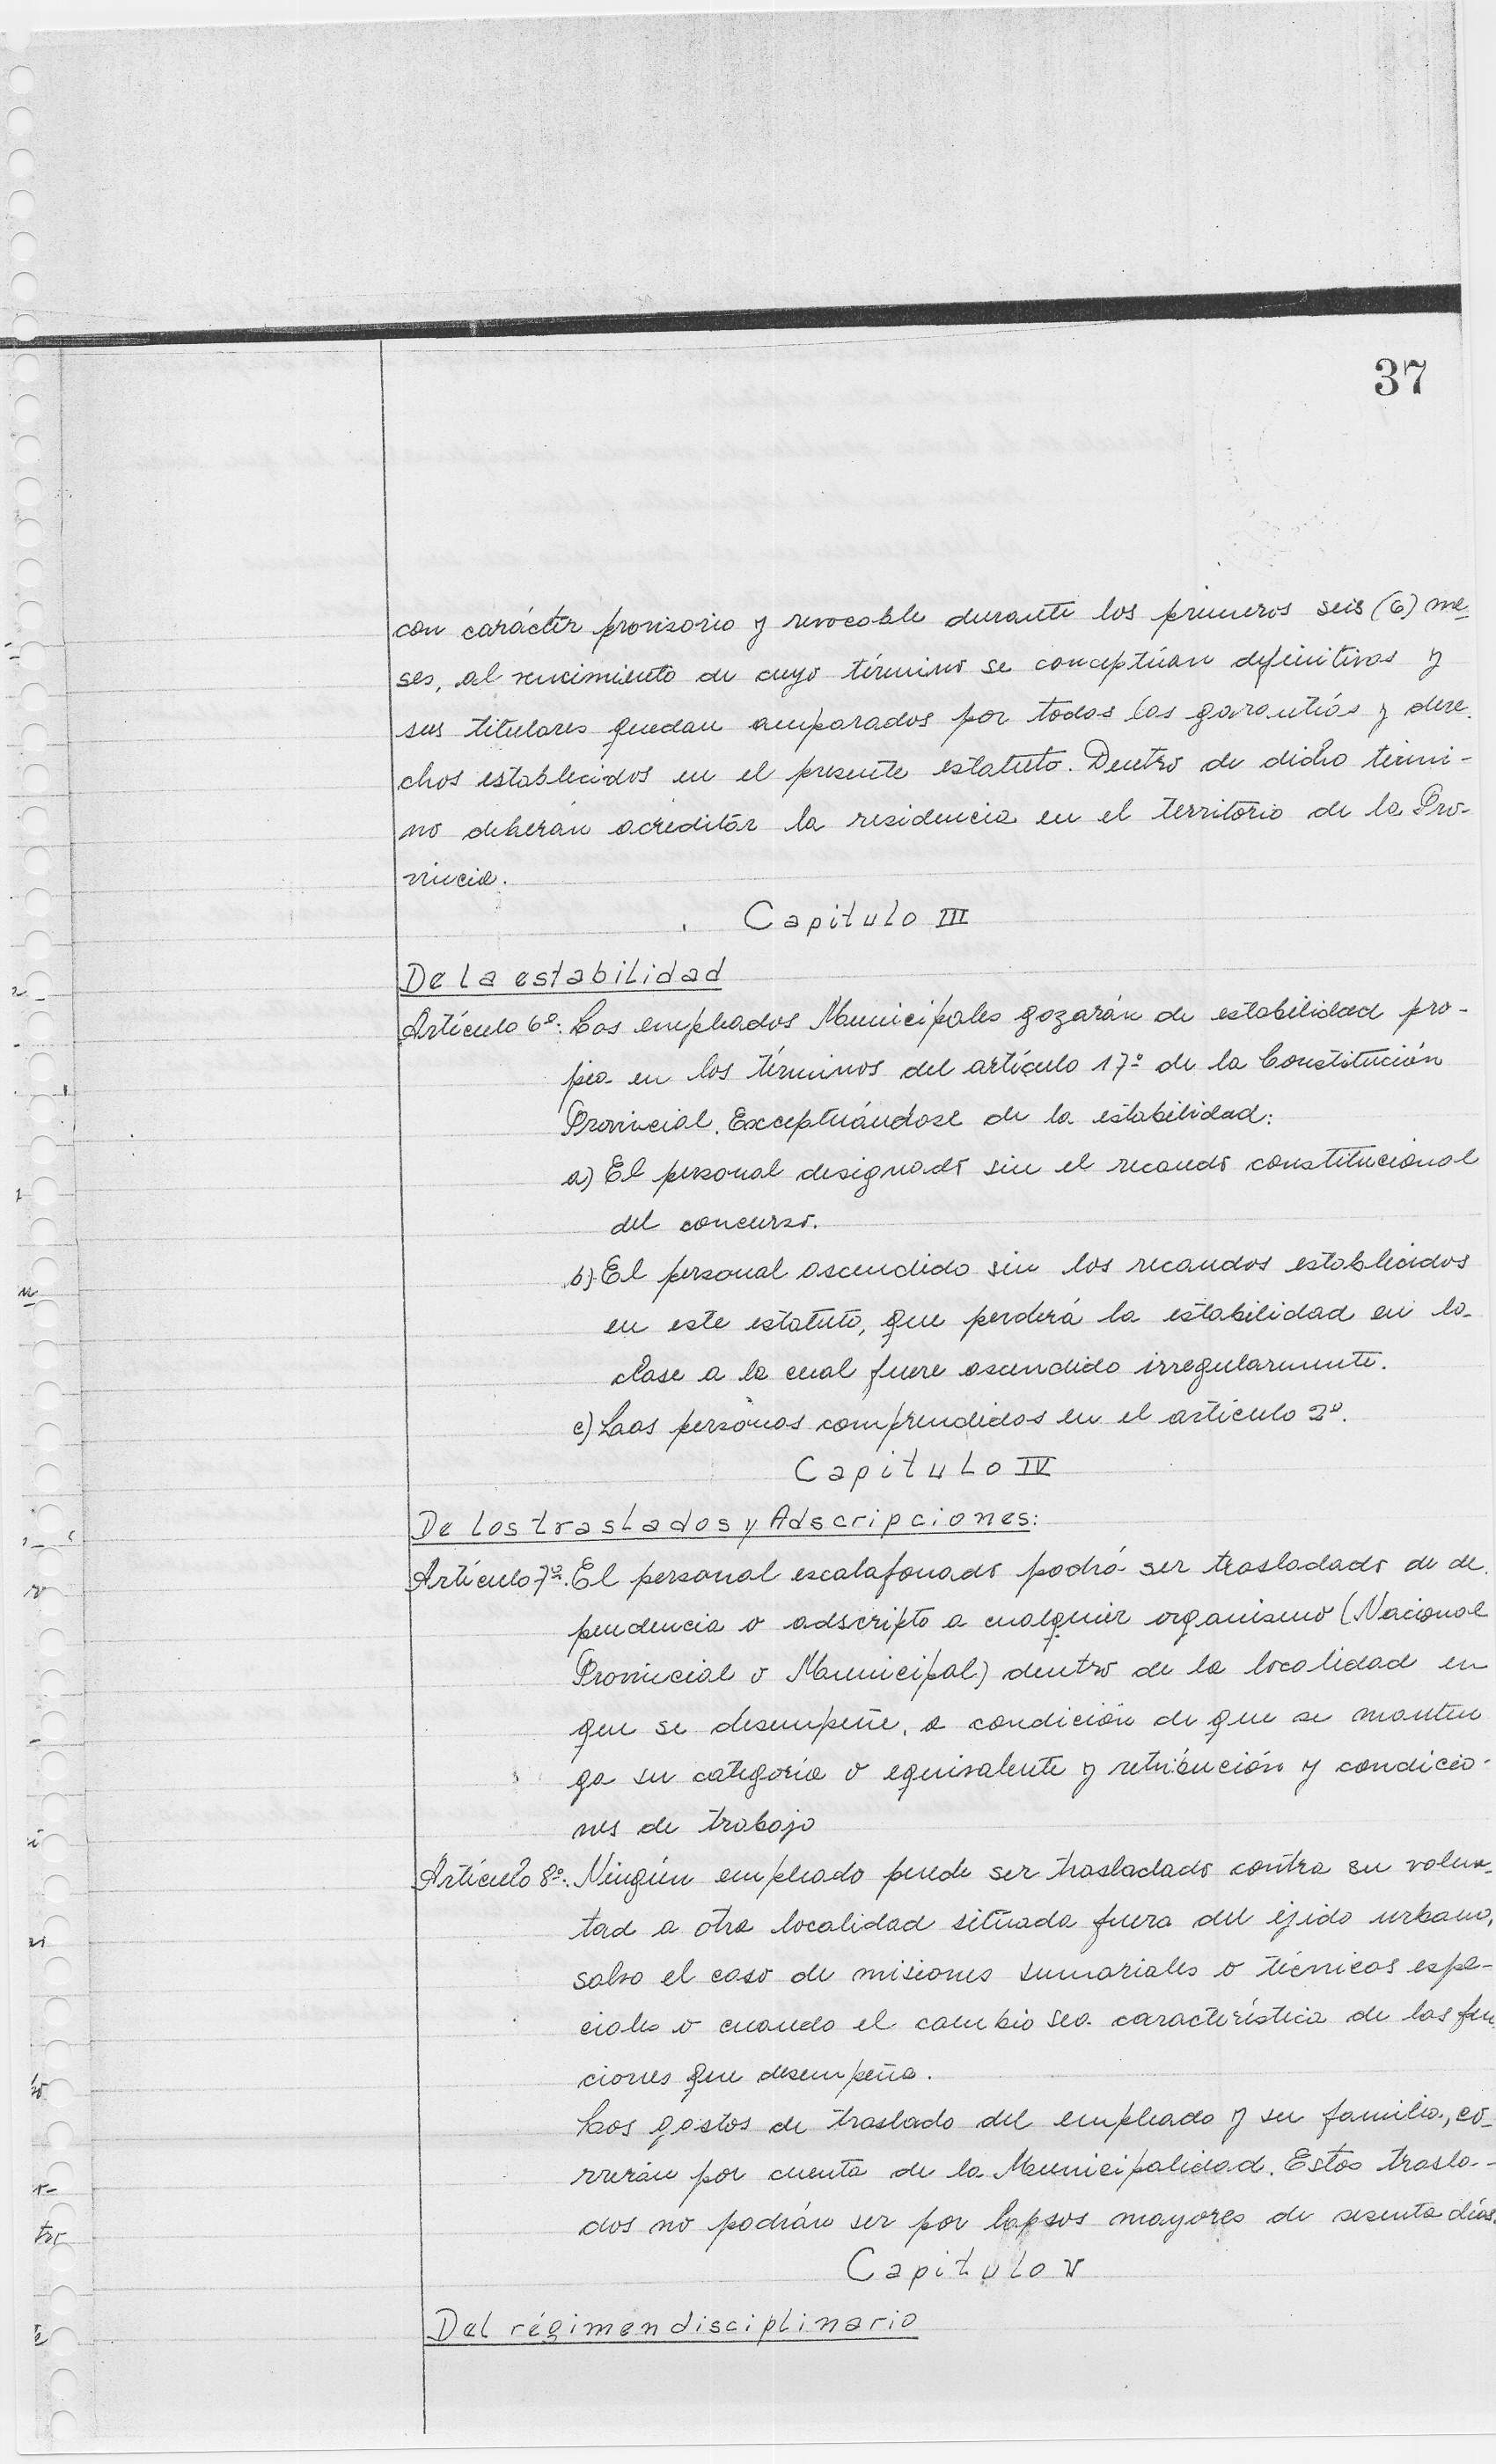 37
con carácter provisorio y revocable durante los primeros seis (6) me-
ses, al vencimiento de cuyo término se conceptúan definitivos y
sus titulares quedan amparados por todas las garantías y dere-
chos establecidos en el presente estatuto. Dentro de dicho térmi-
no deberán acreditar la residencia en el territorio de la Pro-
vincia.
Capitulo III
De la estabilidad
Artículo 6º: Los empleados Municipales gozarán de estabilidad pro-
pia en los términos del artículo 17º de la Constitución
Provincial. Exceptuándose de la estabilidad:
a) El personal designado sin el recaudo constitucional
del concurso.
b) El personal ascendido sin los recaudos establecidos
en este estatuto, que perderá la estabilidad en la
clase a la cual fuere ascendido irregularmente.
c) Laas personas comprendidas en el artículo 2º.
Capitulo IV
De los traslados y Adscripciones:
Artículo 7º. El personal escalafonado podrá ser trasladado de de-
pendencia o adscripto a cualquier organismo (Nacional
Provincial o Municipal) dentro de la localidad en
que se desempeñe, a condición de que se manten
ga su categoría o equivalente y retribución y condicio-
nes de trabajo
Artículo 8º: Ningún empleado puede ser trasladado contra su volun-
tad a otra localidad situada fuera del ejido urbano,
salvo el caso de misiones sumariales o técnicas espe-
ciales o cuando el cambio sea característica de las fun
ciones que desempeña.
Los gastos de traslado del empleado y su familia, co-
rrerán por cuenta de la Municipalidad. Estos trasla-
dos no podrán ser por lapsos mayores de sesenta días.
Capitulo V
Del régimen disciplinario